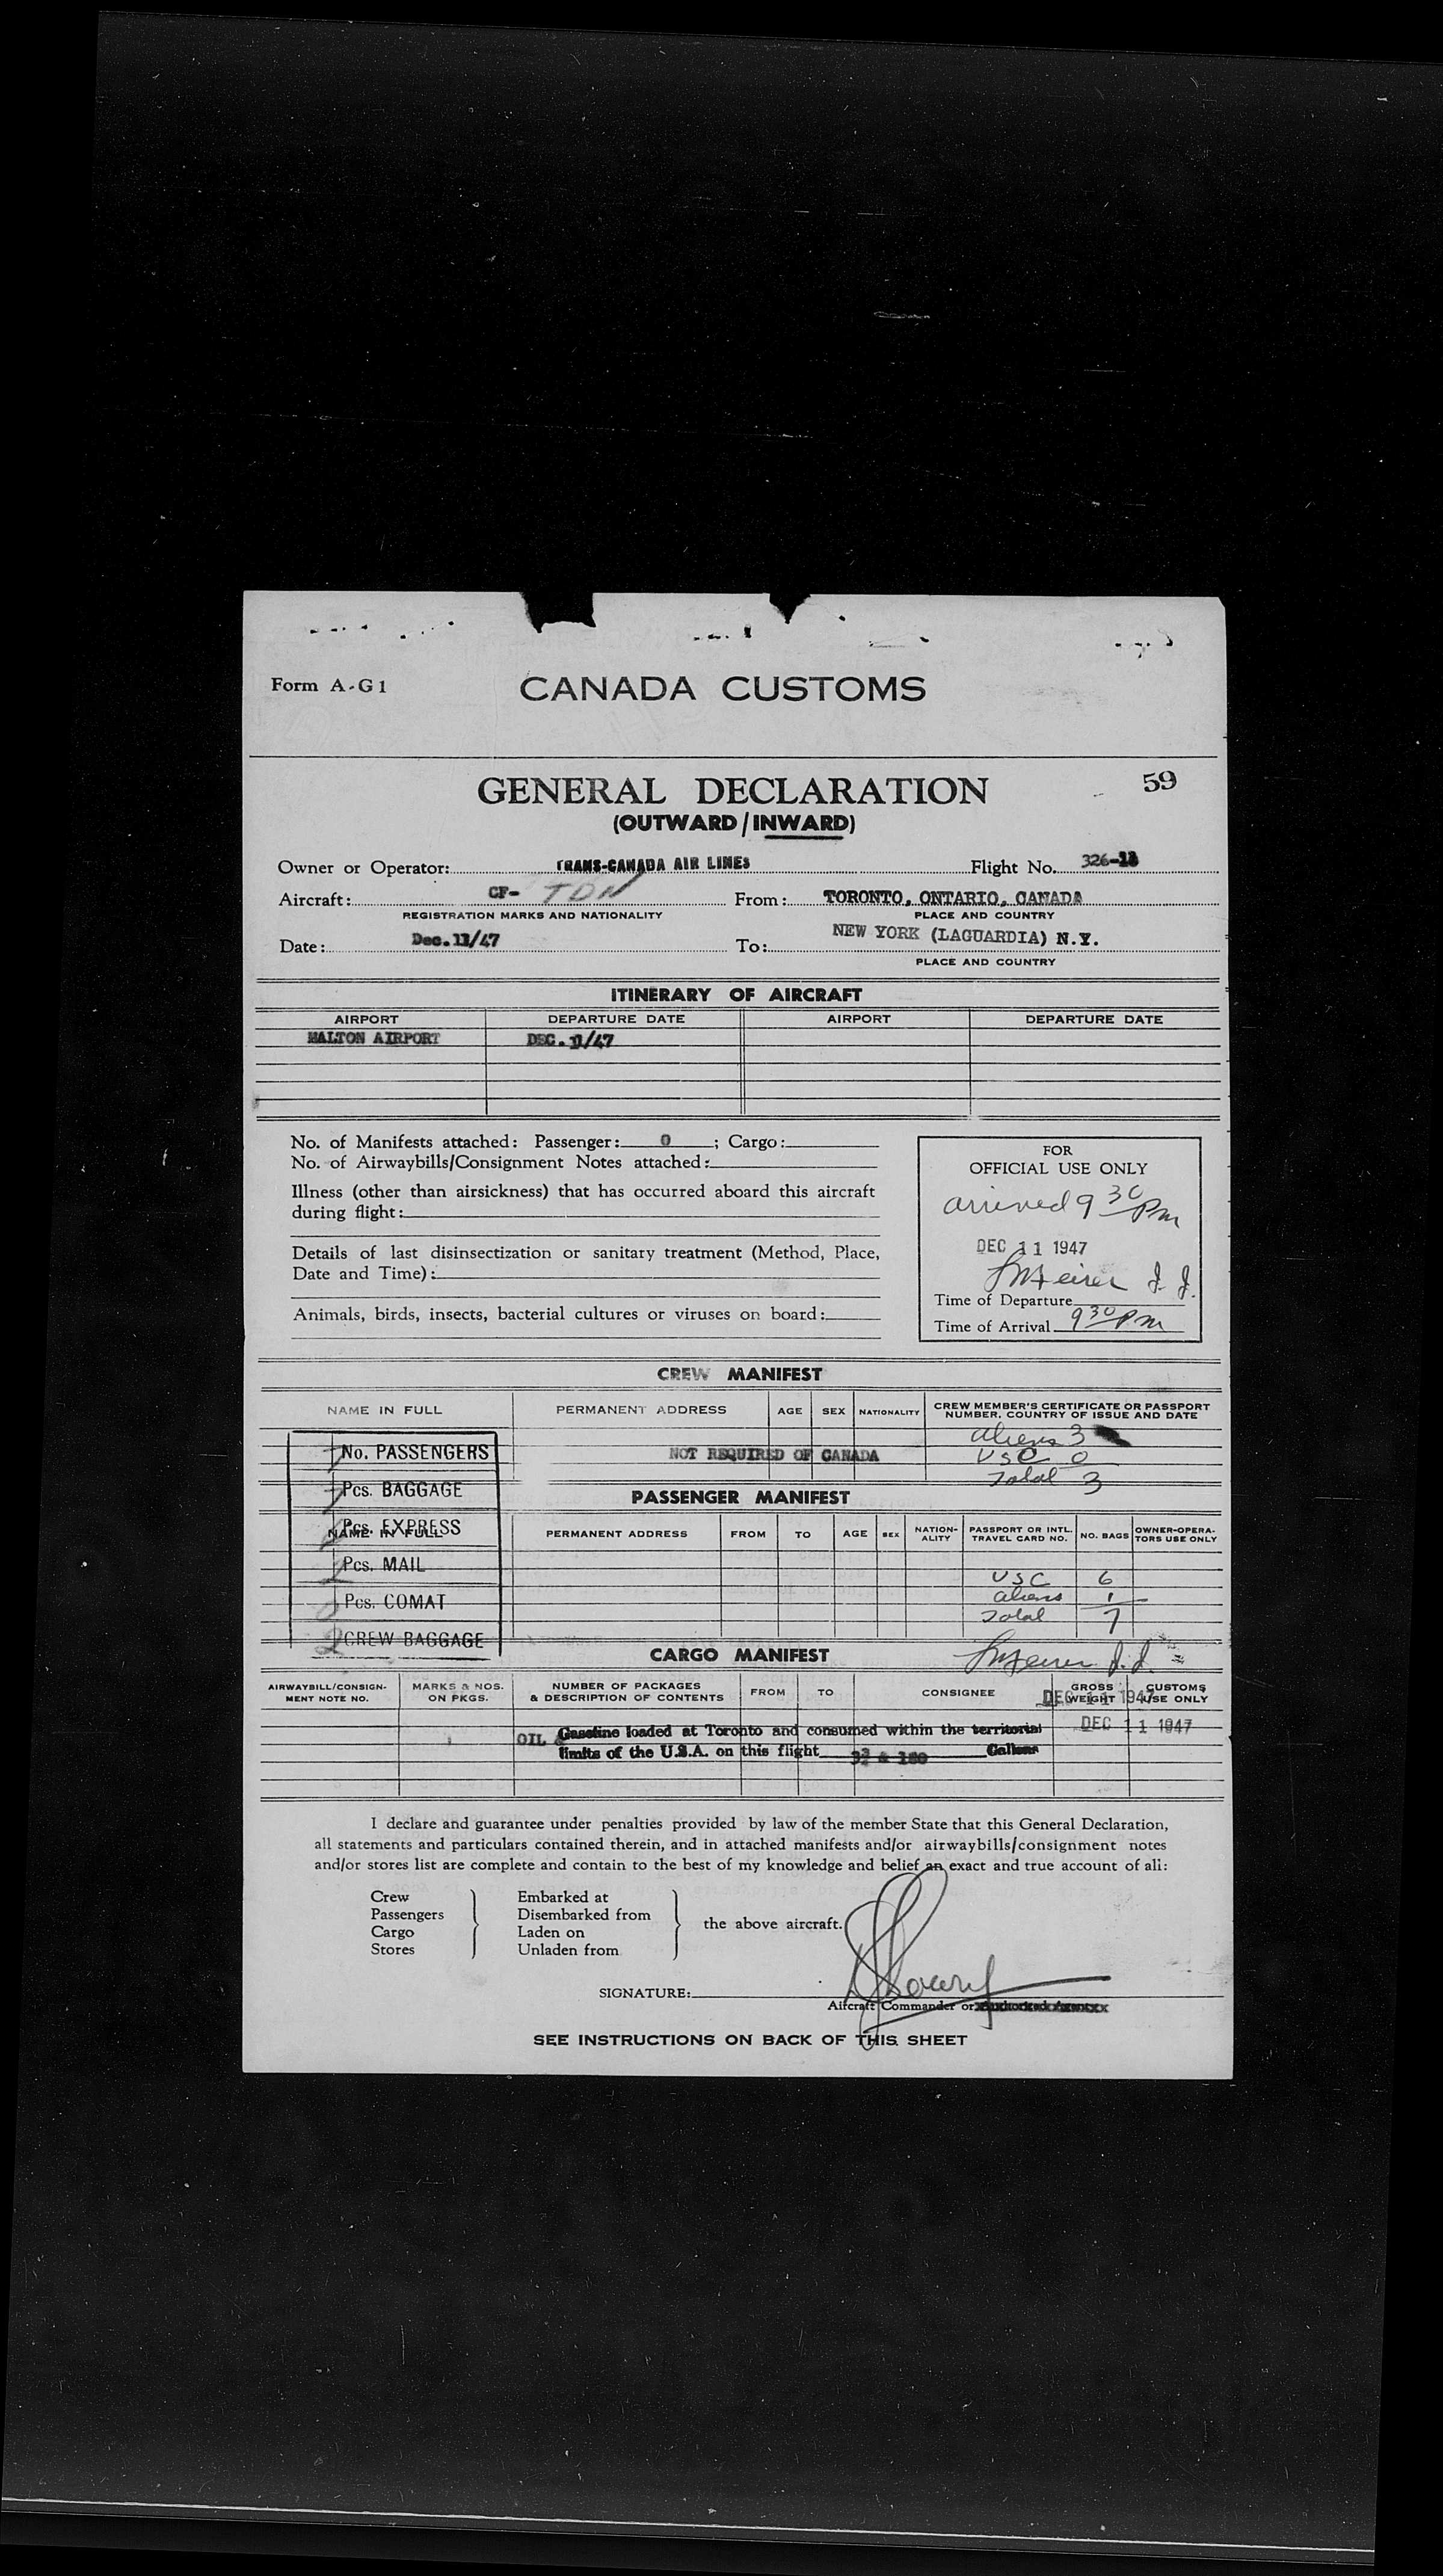 Form A-G1
CANADA CUSTOMS
59
GENERAL DECLARATION
(OUTWARD/INWARD)
Owner or Operator: TRANS-CANADA AIR LINES Flight No. 326-
Aircraft: CF- TDN From: TORONTO, ONTARIO, CANADA
REGISTRATION MARKS AND NATIONALITY PLACE AND COUNTRY
Date: Dec.11/47 To: NEW YORK (LAGUARDIA) N.Y.
PLACE AND COUNTRY
ITINERARY OF AIRCRAFT
AIRPORT DEPARTURE DATE AIRPORT DEPARTURE DATE
MALTON AIRPORT DEC. 11/47
No. of Manifests attached: Passenger: 0 ; Cargo:
No. of Airwaybills/Consignment Notes attached:
Illness (other than airsickness) that has occurred aboard this aircraft
during flight:
Details of last disinsectization or sanitary treatment (Method, Place,
Date and Time):
Animals, birds, insects, bacterial cultures or viruses on board:
FOR
OFFICIAL USE ONLY
arrived 9 30 Pm
DEC 11 1947
Time of Departure
Time of Arrival 9 30 Pm
CREW MANIFEST
NAME IN FULL PERMANENT ADDRESS AGE SEX NATIONALITY CREW MEMBER'S CERTIFICATE OR PASSPORT
NUMBER, COUNTRY OF ISSUE AND DATE
aliens 3
NOT REQUIRED OF CANADA USC 0
Total 3
No. PASSENGERS
Pcs. BAGGAGE
Pcs. EXPRESS
Pcs. MAIL
Pcs. COMAT
CREW BAGGAGE
PASSENGER MANIFEST
NAME IN FULL PERMANENT ADDRESS FROM TO AGE SEX NATION-
ALITY PASSPORT OR INTL.
TRAVEL CARD NO. NO. BAGS OWNER-OPERA-
TORS USE ONLY
USC 6
aliens 1
Total 7
CARGO MANIFEST
AIRWAYBILL/CONSIGN-
MENT NOTE NO. MARKS & NOS.
ON PKGS. NUMBER OF PACKAGES
& DESCRIPTION OF CONTENTS FROM TO CONSIGNEE GROSS
WEIGHT CUSTOMS
USE ONLY
DEC 11 1947
OIL & Gasoline loaded at Toronto and consumed within the territorial DEC 11 1947
limits of the U.S.A. on this flight Gallons
I declare and guarantee under penalties provided by law of the member State that this General Declaration,
all statements and particulars contained therein, and in attached manifests and/or airwaybills/consignment notes
and/or stores list are complete and contain to the best of my knowledge and belief an exact and true account of all:
Crew Embarked at
Passengers Disembarked from
Cargo Laden on
Stores Unladen from
the above aircraft.
SIGNATURE:
Aircraft Commander or
SEE INSTRUCTIONS ON BACK OF THIS SHEET